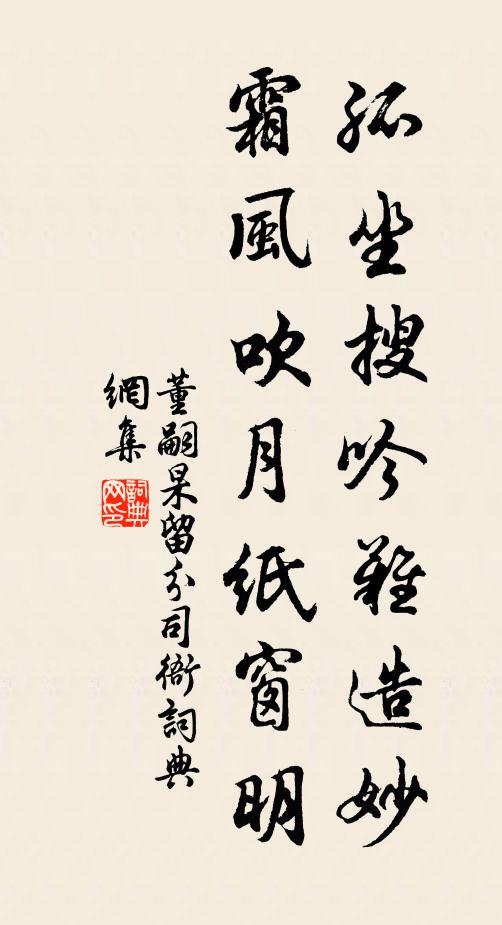 孤坐搜吟難造妙
霜風吹月紙窗明
董嗣杲留分司衙詞典
網集
詞典网印